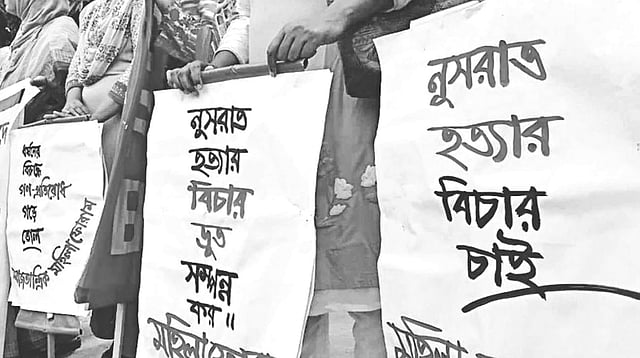 ধর্ষনের
বিরুদ্ধে
গণ-প্রতিরোধ
গড়ে
তোল
সমাজতান্ত্রিক মহিলা ফোরাম
নুসরাত
হত্যার
বিচার
দ্রুত
সম্পন্ন
কর॥
মহিলা ফোরাম
নুসরাত
হত্যার
বিচার
চাই
মহিলা